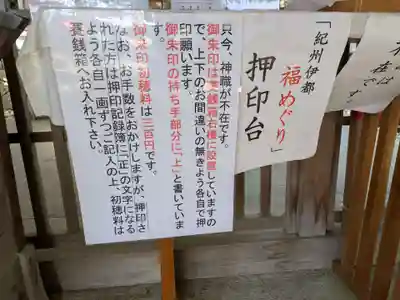 「紀州伊都
福めぐり」
押印台
只今、神職が不在です。
御朱印は賽銭箱右横に設置していますの
で、上下のお間違いの無きよう各自で押
印願います。
御朱印の持ち手部分に「上」と書いていま
す。
御朱印初穂料は三百円です。
なお、お手数をおかけしますが、押印さ
れた方は押印記録簿に「正」の文字になる
よう各自一画ずつご記入の上、初穂料は
賽銭箱へお入れ下さい。
不在
です。